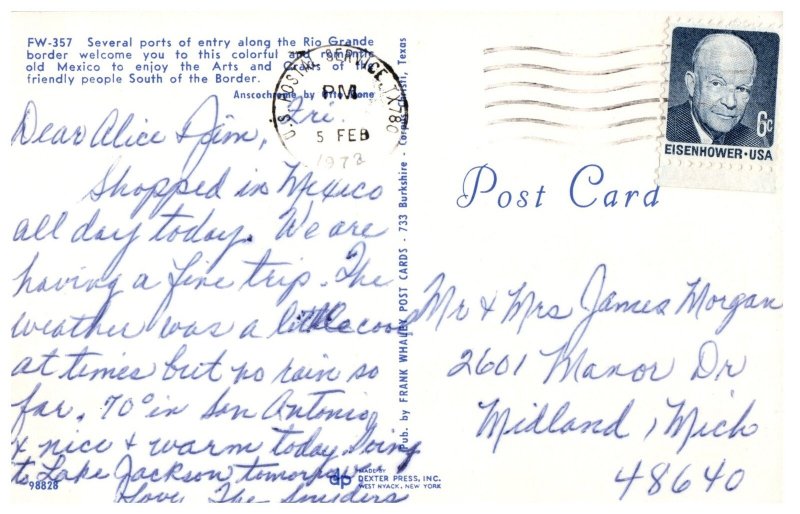 FW-357 Several ports of entry along the Rio Grande
border welcome you to this colorful and romantic
old Mexico to enjoy the Arts and Crafts of the
friendly people South of the Border.
Anscochrome by
U.S. POSTAL SERVICE, TX 780
PM
5 FEB
1972
6c
EISENHOWER·USA
Fri.
Dear Alice & Jim,
Shopped in Mexico
all day today. We are
having a fine trip. The
weather was a little cool
at times but no rain so
far. 70° in San Antonio
& nice & warm today. Going
to Lake Jackson tomorrow
Love, The Sniders
98828
Pub. by FRANK WHALEY POST CARDS - 733 Burkshire - Corpus Christi, Texas
Post Card
Mr & Mrs James Morgan
2601 Manor Dr
Midland, Mich
48640
dp
MADE BY
DEXTER PRESS, INC.
WEST NYACK, NEW YORK